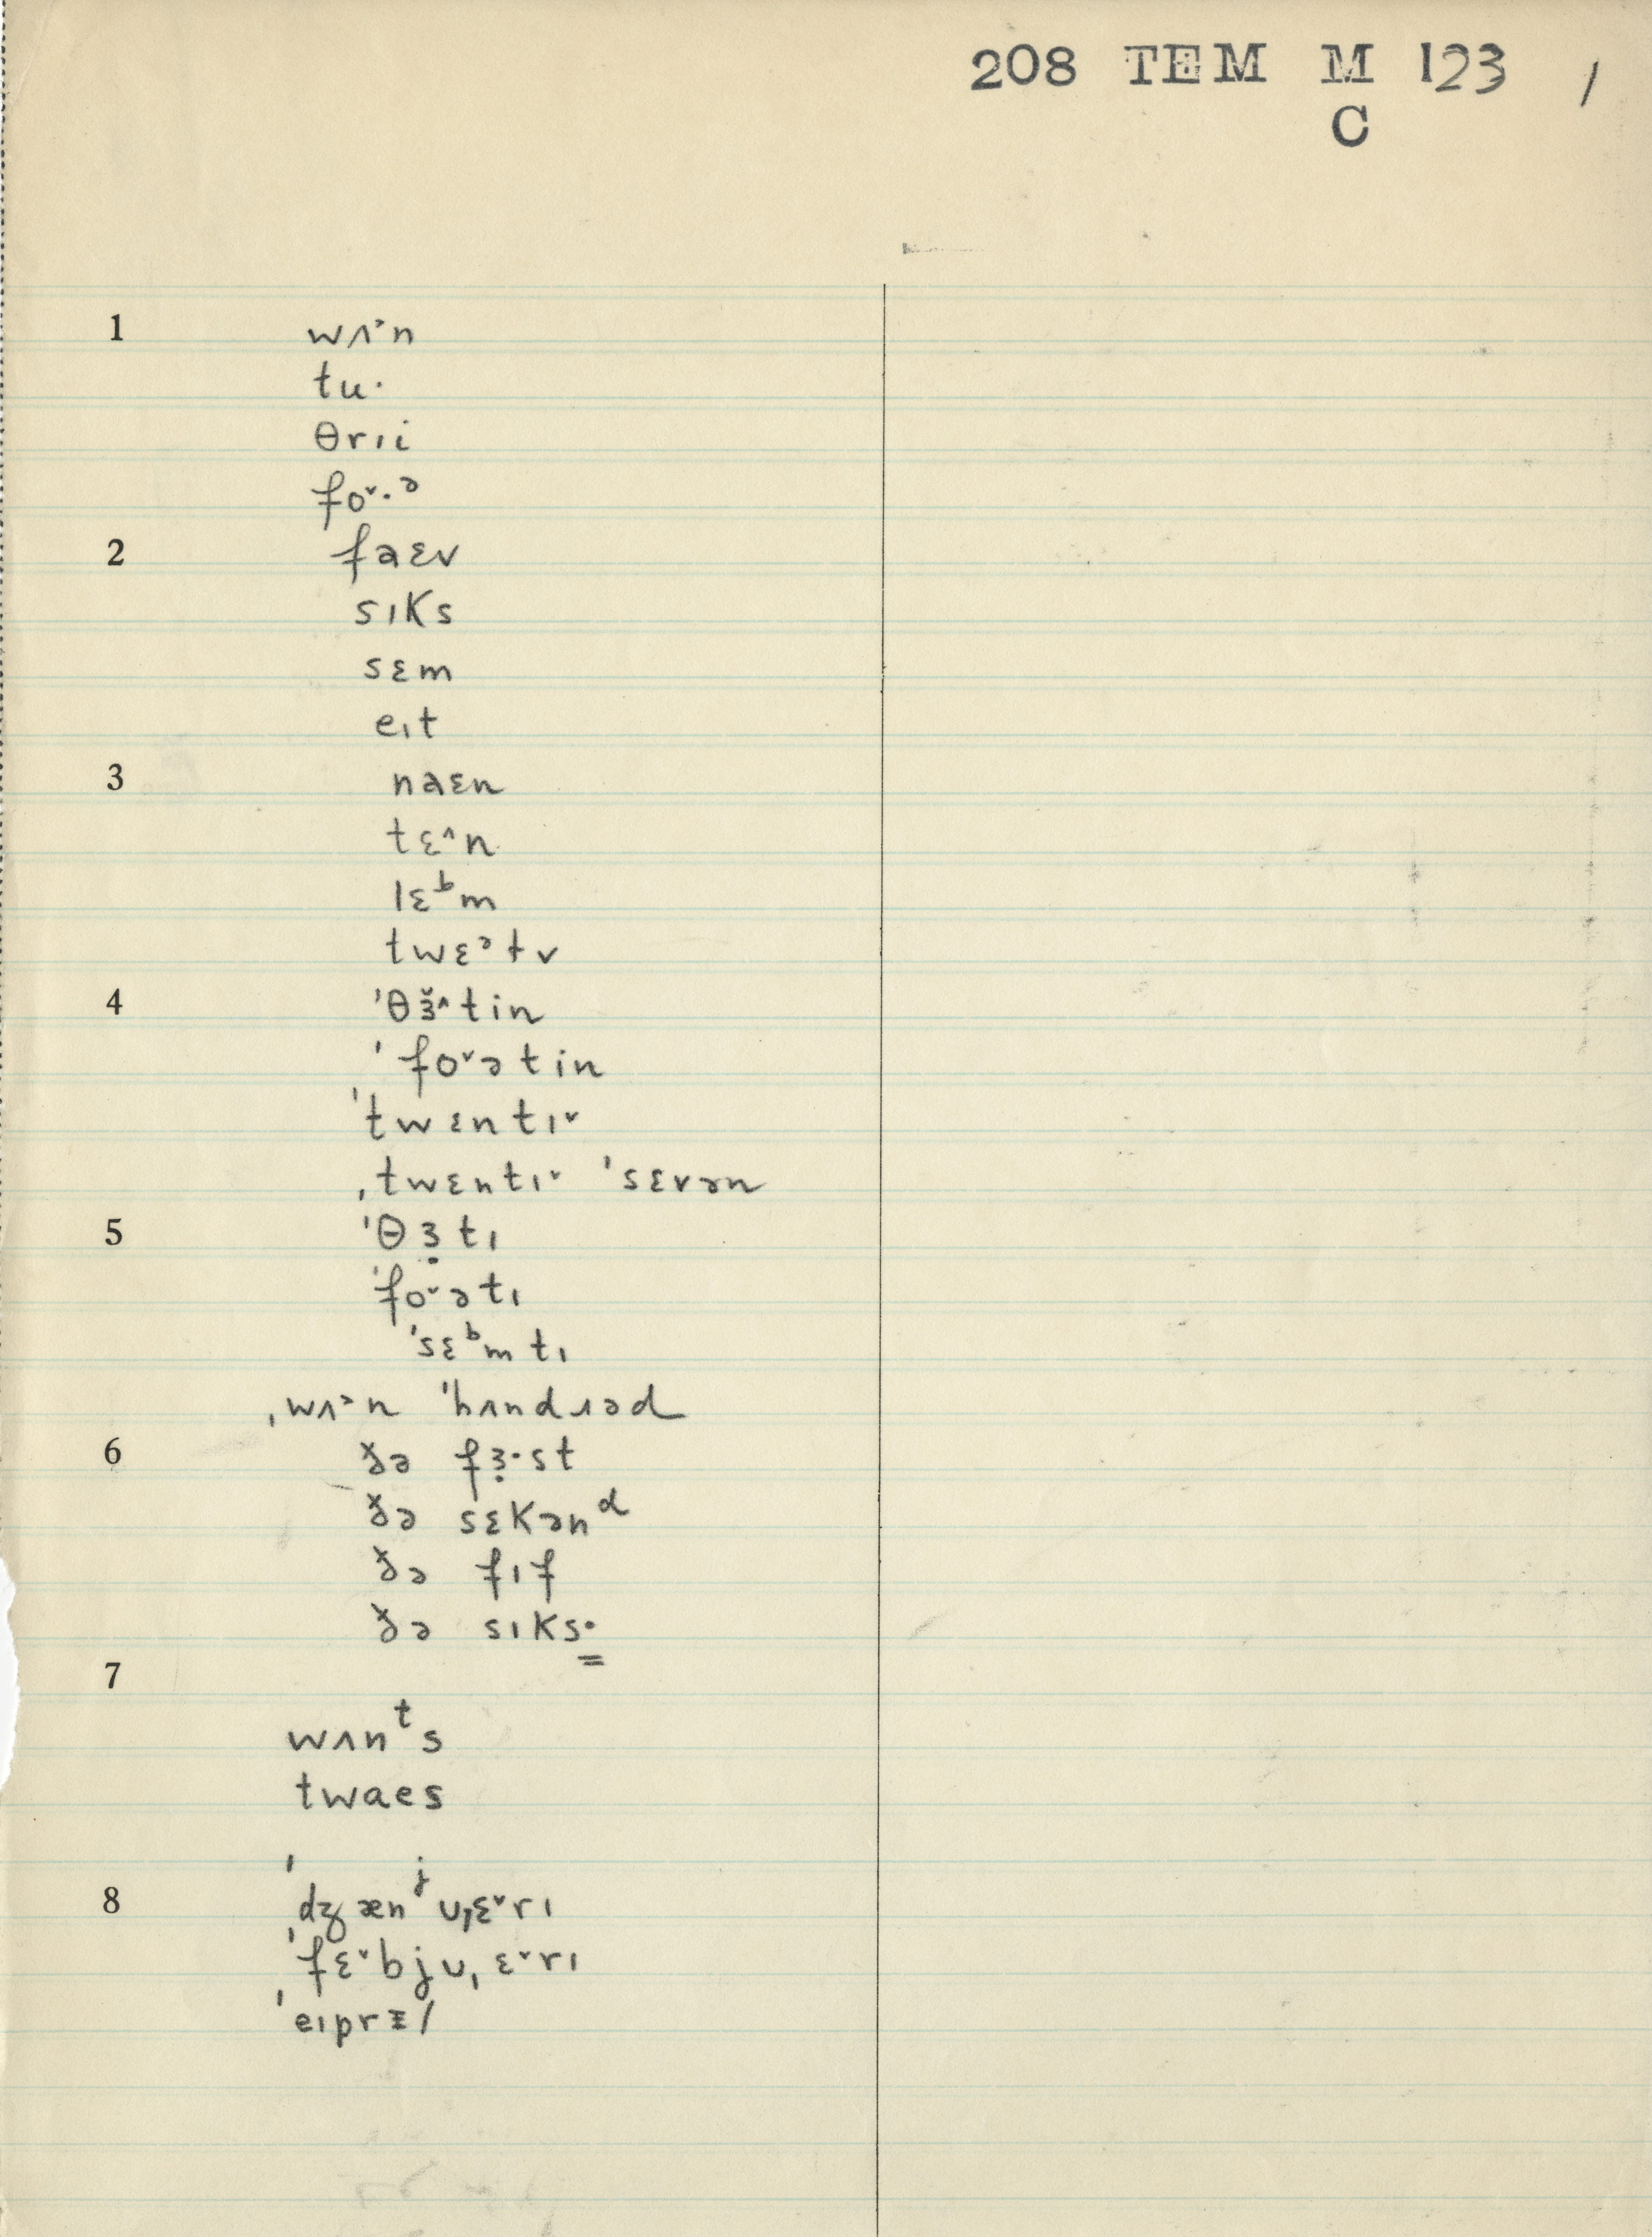 208 TEM M 123 /
C
1 wʌ˃n
tu·
θrɪi
fo˅·ᵊ
2 faɛv
sɪks
sɛm
eɪt
3 naɛn
tɛ˄n
lɛᵇm
twɛᵊtv
4 ˈθɜ̆˄tin
ˈfo˅ətin
ˈtwɛntɪ˅
ˌtwɛntɪ˅ ˈsɛvən
5 ˈθɜ̣tɪ
ˈfo˅ətɪ
ˈsɛᵇmtɪ
ˌwʌ˃n ˈhʌndɹəd
6 ðə fɜ̣·st
ðə sɛkənᵈ
ðə fɪf
ðə sɪks·
7
wʌnᵗs
twaes
8 ˈdʒænʲʊˌɛ˅rɪ
ˈfɛ˅bjʊˌɛ˅rɪ
ˈeɪprɪl